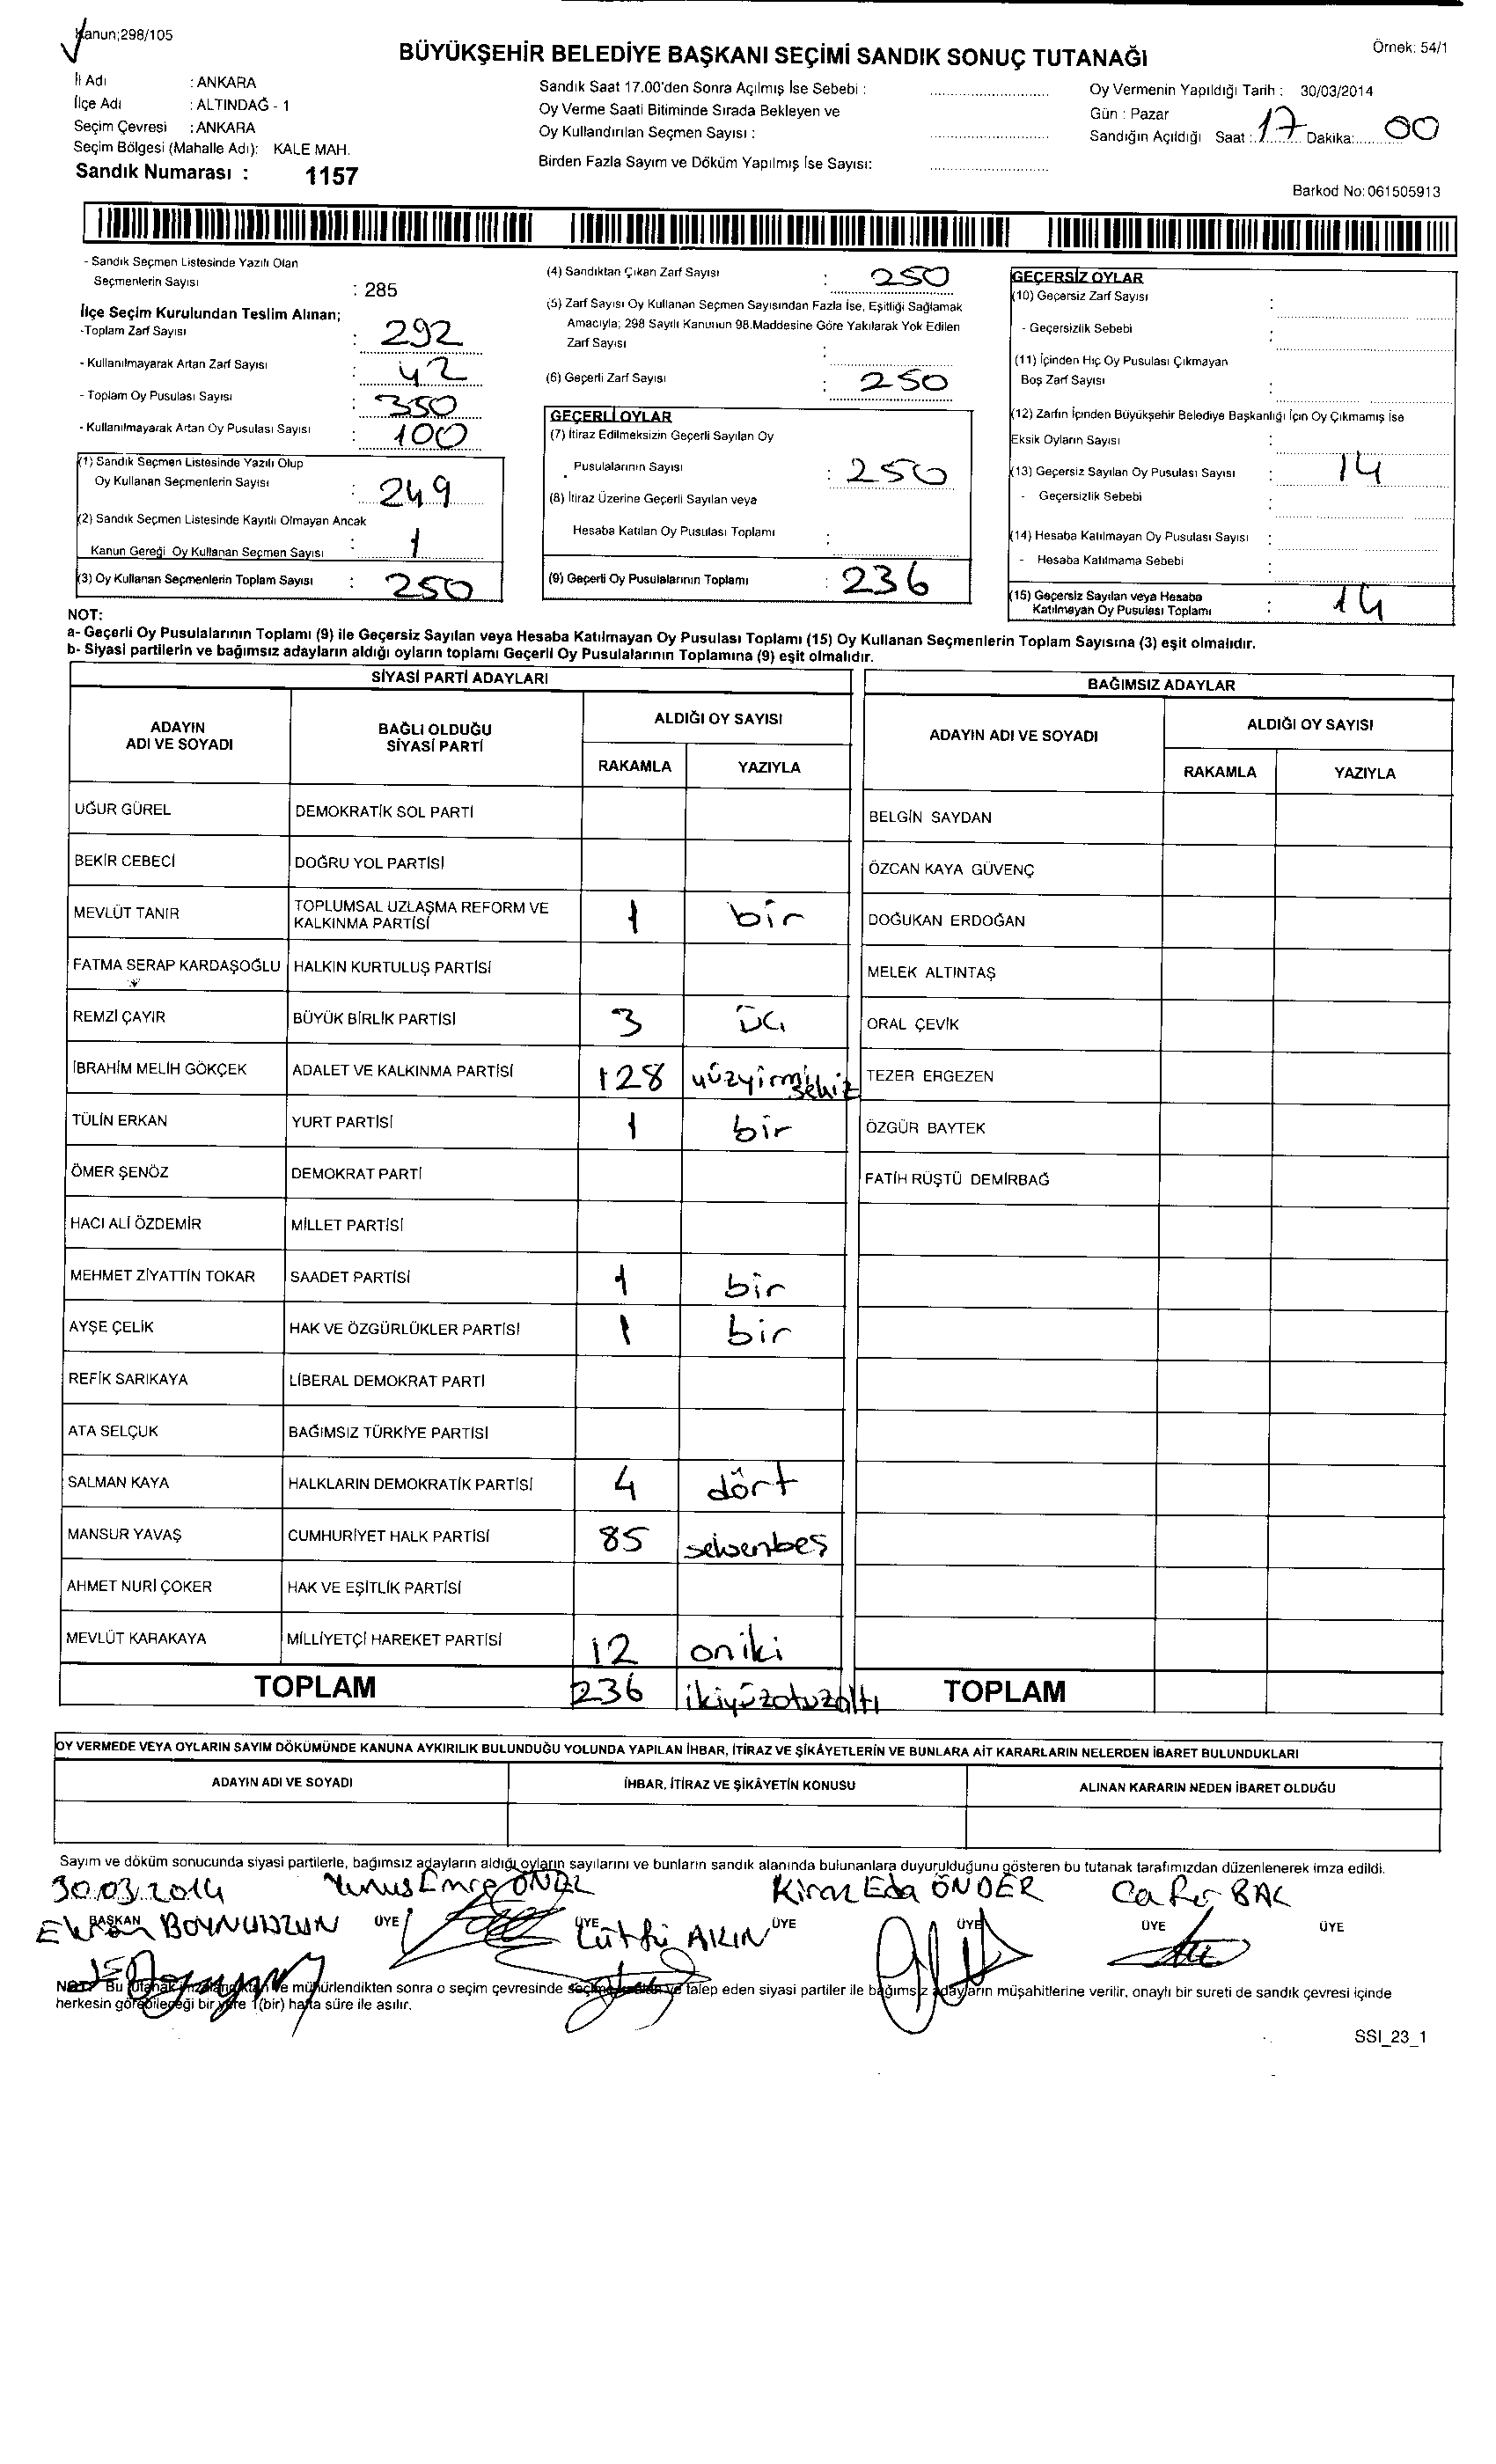 Kanun;298/105
Örnek: 54/1
BÜYÜKŞEHİR BELEDİYE BAŞKANI SEÇİMİ SANDIK SONUÇ TUTANAĞI
İl Adı : ANKARA
İlçe Adı : ALTINDAĞ - 1
Seçim Çevresi : ANKARA
Seçim Bölgesi (Mahalle Adı): KALE MAH.
Sandık Numarası : 1157
Sandık Saat 17.00'den Sonra Açılmış İse Sebebi :
Oy Verme Saati Bitiminde Sırada Bekleyen ve
Oy Kullandırılan Seçmen Sayısı :
Birden Fazla Sayım ve Döküm Yapılmış İse Sayısı:
Oy Vermenin Yapıldığı Tarih : 30/03/2014
Gün : Pazar
Sandığın Açıldığı Saat : 17 Dakika: 00
Barkod No: 061505913
- Sandık Seçmen Listesinde Yazılı Olan
Seçmenlerin Sayısı : 285
İlçe Seçim Kurulundan Teslim Alınan;
-Toplam Zarf Sayısı : 292
- Kullanılmayarak Artan Zarf Sayısı : 42
- Toplam Oy Pusulası Sayısı : 350
- Kullanılmayarak Artan Oy Pusulası Sayısı : 100
(1) Sandık Seçmen Listesinde Yazılı Olup
Oy Kullanan Seçmenlerin Sayısı : 249
(2) Sandık Seçmen Listesinde Kayıtlı Olmayan Ancak
Kanun Gereği Oy Kullanan Seçmen Sayısı : 1
(3) Oy Kullanan Seçmenlerin Toplam Sayısı : 250
(4) Sandıktan Çıkan Zarf Sayısı : 250
(5) Zarf Sayısı Oy Kullanan Seçmen Sayısından Fazla İse, Eşitliği Sağlamak
Amacıyla; 298 Sayılı Kanunun 98.Maddesine Göre Yakılarak Yok Edilen
Zarf Sayısı :
(6) Geçerli Zarf Sayısı : 250
GEÇERLİ OYLAR
(7) İtiraz Edilmeksizin Geçerli Sayılan Oy
Pusulalarının Sayısı : 250
(8) İtiraz Üzerine Geçerli Sayılan veya
Hesaba Katılan Oy Pusulası Toplamı :
(9) Geçerli Oy Pusulalarının Toplamı : 236
GEÇERSİZ OYLAR
(10) Geçersiz Zarf Sayısı :
- Geçersizlik Sebebi :
(11) İçinden Hiç Oy Pusulası Çıkmayan
Boş Zarf Sayısı :
(12) Zarfın İçinden Büyükşehir Belediye Başkanlığı İçin Oy Çıkmamış İse
Eksik Oyların Sayısı :
(13) Geçersiz Sayılan Oy Pusulası Sayısı : 14
- Geçersizlik Sebebi :
(14) Hesaba Katılmayan Oy Pusulası Sayısı :
- Hesaba Katılmama Sebebi :
(15) Geçersiz Sayılan veya Hesaba
Katılmayan Oy Pusulası Toplamı : 14
NOT:
a- Geçerli Oy Pusulalarının Toplamı (9) ile Geçersiz Sayılan veya Hesaba Katılmayan Oy Pusulası Toplamı (15) Oy Kullanan Seçmenlerin Toplam Sayısına (3) eşit olmalıdır.
b- Siyasi partilerin ve bağımsız adayların aldığı oyların toplamı Geçerli Oy Pusulalarının Toplamına (9) eşit olmalıdır.
SİYASİ PARTİ ADAYLARI
ADAYIN ADI VE SOYADI BAĞLI OLDUĞU SİYASİ PARTİ ALDIĞI OY SAYISI
RAKAMLA YAZIYLA
UĞUR GÜREL DEMOKRATİK SOL PARTİ
BEKİR CEBECİ DOĞRU YOL PARTİSİ
MEVLÜT TANIR TOPLUMSAL UZLAŞMA REFORM VE KALKINMA PARTİSİ 1 bir
FATMA SERAP KARDAŞOĞLU HALKIN KURTULUŞ PARTİSİ
REMZİ ÇAYIR BÜYÜK BİRLİK PARTİSİ 3 üç
İBRAHİM MELİH GÖKÇEK ADALET VE KALKINMA PARTİSİ 128 yüzyirmisekiz
TÜLİN ERKAN YURT PARTİSİ 1 bir
ÖMER ŞENÖZ DEMOKRAT PARTİ
HACI ALİ ÖZDEMİR MİLLET PARTİSİ
MEHMET ZİYATTİN TOKAR SAADET PARTİSİ 1 bir
AYŞE ÇELİK HAK VE ÖZGÜRLÜKLER PARTİSİ 1 bir
REFİK SARIKAYA LİBERAL DEMOKRAT PARTİ
ATA SELÇUK BAĞIMSIZ TÜRKİYE PARTİSİ
SALMAN KAYA HALKLARIN DEMOKRATİK PARTİSİ 4 dört
MANSUR YAVAŞ CUMHURİYET HALK PARTİSİ 85 seksenbeş
AHMET NURİ ÇOKER HAK VE EŞİTLİK PARTİSİ
MEVLÜT KARAKAYA MİLLİYETÇİ HAREKET PARTİSİ 12 oniki
TOPLAM 236 ikiyüzotuzaltı
BAĞIMSIZ ADAYLAR
ADAYIN ADI VE SOYADI ALDIĞI OY SAYISI
RAKAMLA YAZIYLA
BELGİN SAYDAN
ÖZCAN KAYA GÜVENÇ
DOĞUKAN ERDOĞAN
MELEK ALTINTAŞ
ORAL ÇEVİK
TEZER ERGEZEN
ÖZGÜR BAYTEK
FATİH RÜŞTÜ DEMİRBAĞ
TOPLAM
OY VERMEDE VEYA OYLARIN SAYIM DÖKÜMÜNDE KANUNA AYKIRILIK BULUNDUĞU YOLUNDA YAPILAN İHBAR, İTİRAZ VE ŞİKÂYETLERİN VE BUNLARA AİT KARARLARIN NELERDEN İBARET BULUNDUKLARI
ADAYIN ADI VE SOYADI İHBAR, İTİRAZ VE ŞİKÂYETİN KONUSU ALINAN KARARIN NEDEN İBARET OLDUĞU
Sayım ve döküm sonucunda siyasi partilerle, bağımsız adayların aldığı oyların sayılarını ve bunların sandık alanında bulunanlara duyurulduğunu gösteren bu tutanak tarafımızdan düzenlenerek imza edildi.
30.03.2014 Yunus Emre ÖNAL Kiraz Eda ÖNDER BAL
BAŞKAN BOYNUUZUN ÜYE ÜYE Lütfü AKIN ÜYE ÜYE ÜYE ÜYE
NOT: Bu tutanak ve mühürlendikten sonra o seçim çevresinde ve talep eden siyasi partiler ile bağımsız adayların müşahitlerine verilir, onaylı bir sureti de sandık çevresi içinde
herkesin görebileceği bir yere 1(bir) hafta süre ile asılır.
SSI_23_1